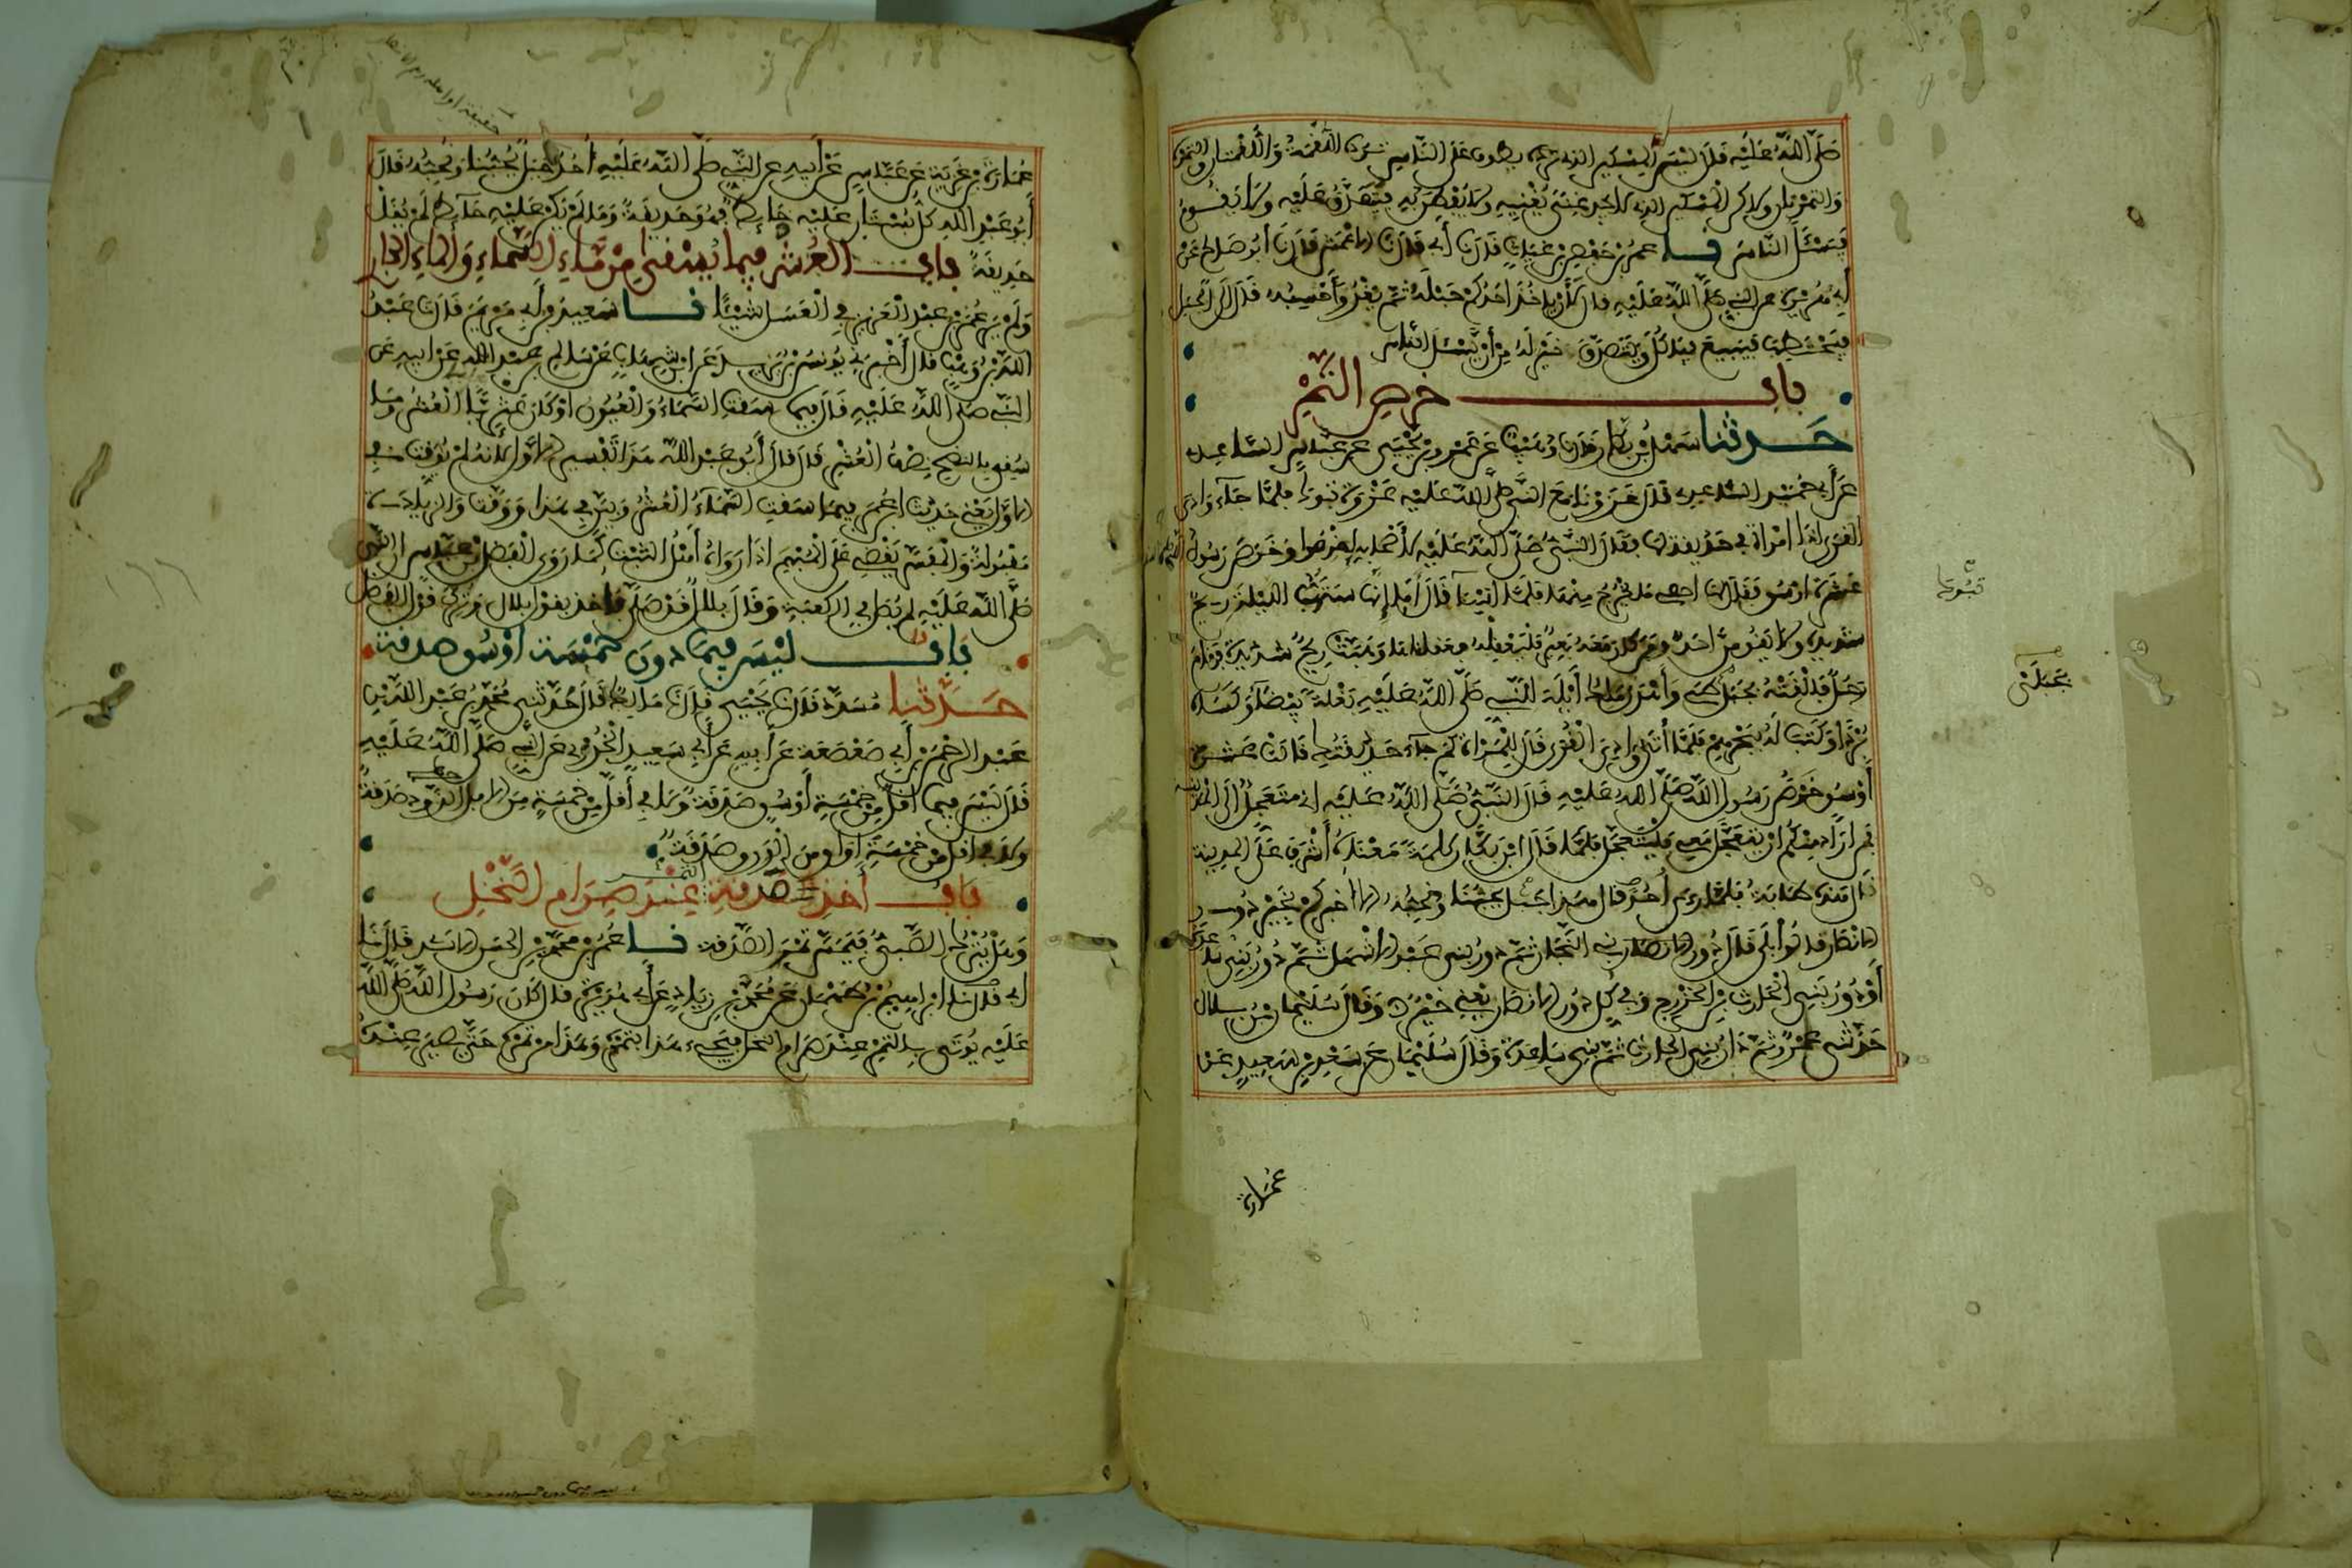 صَلَّى اللَّهُ عَلَيْهِ قَالَ لَيْسَ الْمِسْكِينُ الذي يطوف عَلَى النَّاسِ تَرُدُّهُ اللُّقْمَةُ وَاللُّقْمَتَانِ وَالتَّمْرَةُ
وَالتَّمْرَتَانِ ولاكن الْمِسْكِين الذي لا يجد غِنًى يُغْنِيهِ وَلَا يُفْطَنُ بِهِ فَيُتَصَدَّقُ عَلَيْهِ وَلَا يَقُومُ
فَيَسْئَلَ النَّاسَ نا عمر بن حفص بن غياث قَالَ نَا أبي قَالَ نَا الاعمش قَالَ نَا أبو صالح عن
أبي هريرة عن النبي صَلَّى اللَّهُ عَلَيْهِ قال لَأَنْ يَأخُذَ أَحَدُكُمْ حَبْلَهُ ثُمَّ يَغْدُوَ أَحْسِبُهُ قَالَ إِلَى الْجَبَلِ
فيحتطب فيبيع فياكل ويتصدق خير له من أن يسئل الناس
باب خرص التمر
حدثنا سهل بن بكار قال نا وهيب عن عمرو بن يحيى عن عباس الساعدي
عن أبي حميد الساعدي قال غزونا مع النبي صلى الله عليه غزوة تبوك فلما جاء وادي
القرى إذا امرأة في حديقة لها فقال النبي صلى الله عليه لأصحابه اخرصوا وخرص رسول
عشرة أوسق فقال لها احصي ما يخرج منها فلما أتينا قال أما إنها ستهب الليلة ريح
شديدة ولا يقومن أحد ومن كان معه بعير فليعقله فعقلناها وهبت ريح شديدة فقام
رجل فألقته بجبل طيئ وأهدى ملك أيلة للنبي صلى الله عليه بغلة بيضاء وكساه
بردا وكتب له ببحرهم فلما أتى وادي القرى قال للمرأة كم جاء حديقتك قالت عشرة
أوسق خرص رسول الله صلى الله عليه قال النبي صلى الله عليه إني متعجل إلى المدينة
فمن أراد منكم أن يتعجل معي فليتعجل فلما قال ابن بكار كلمة معناه أشرف على المدينة
قال هذه طابة فلما رءى أحدا قال هذا جبل يحبنا ونحبه ألا أخبركم بخير دور
الأنصار قالوا بلى قال دور بني النجار ثم دور بني عبد الأشهل ثم دور بني ساعدة
أو دور بني الحارث بن الخزرج وفي كل دور الأنصار يعني خير وقال سليمان بن بلال
حدثني عمرو ثم دار بني الحارث ثم بني ساعدة وقال سليمان عن سعد بن سعيد عن
عمارة
عمارة بن غزية عن عباس عن أبيه عن النبي صلى الله عليه أحد جبل يحبنا ونحبه قال
أبو عبد الله كل بستان عليه حائط فهو حديقة وما لم يكن عليه حائط لم يقل
حديقة باب العشر فيما يسقى من ماء السماء والماء الجاري
ولم ير عمر بن عبد العزيز في العسل شيئا نا سعيد بن أبي مريم قال نا عبد
الله بن وهب قال أخبرني يونس بن يزيد عن ابن شهاب عن سالم بن عبد الله عن أبيه عن
النبي صلى الله عليه قال فيما سقت السماء والعيون أو كان عثريا العشر وما
سقي بالنضح نصف العشر قال قال أبو عبد الله هذا تفسير الأول لأنه لم يوقت في
الأول يعني حديث ابن عمر فيما سقت السماء العشر وبين في هذا ووقت والزيادة
مقبولة والمفسر يقضي على المبهم إذا رواه أهل الثبت كما روى الفضل بن عباس أن النبي
صلى الله عليه لم يصل في الكعبة وقال بلال قد صلى فأخذ بقول بلال وترك قول الفضل
باب ليس فيما دون خمسة أوسق صدقة
حدثنا مسدد قال نا يحيى قال نا مالك قال حدثني محمد بن عبد الله بن
عبد الرحمن بن أبي صعصعة عن أبيه عن أبي سعيد الخدري عن النبي صلى الله عليه
قال ليس فيما أقل من خمسة أوسق صدقة ولا في أقل من خمسة من الإبل الذود صدقة
ولا في أقل من خمسة أواق من الورق صدقة
باب أخذ صدقة التمر عند صرام النخل
وهل يترك الصبي فيمس تمر الصدقة نا عمر بن محمد بن الحسن الأسدي قال نا
أبي قال نا إبراهيم بن طهمان عن محمد بن زياد عن أبي هريرة قال كان رسول الله صلى الله
عليه يوتى بالتمر عند صرام النخل فيجيء هذا بتمره وهذا من تمره حتى يصير عنده